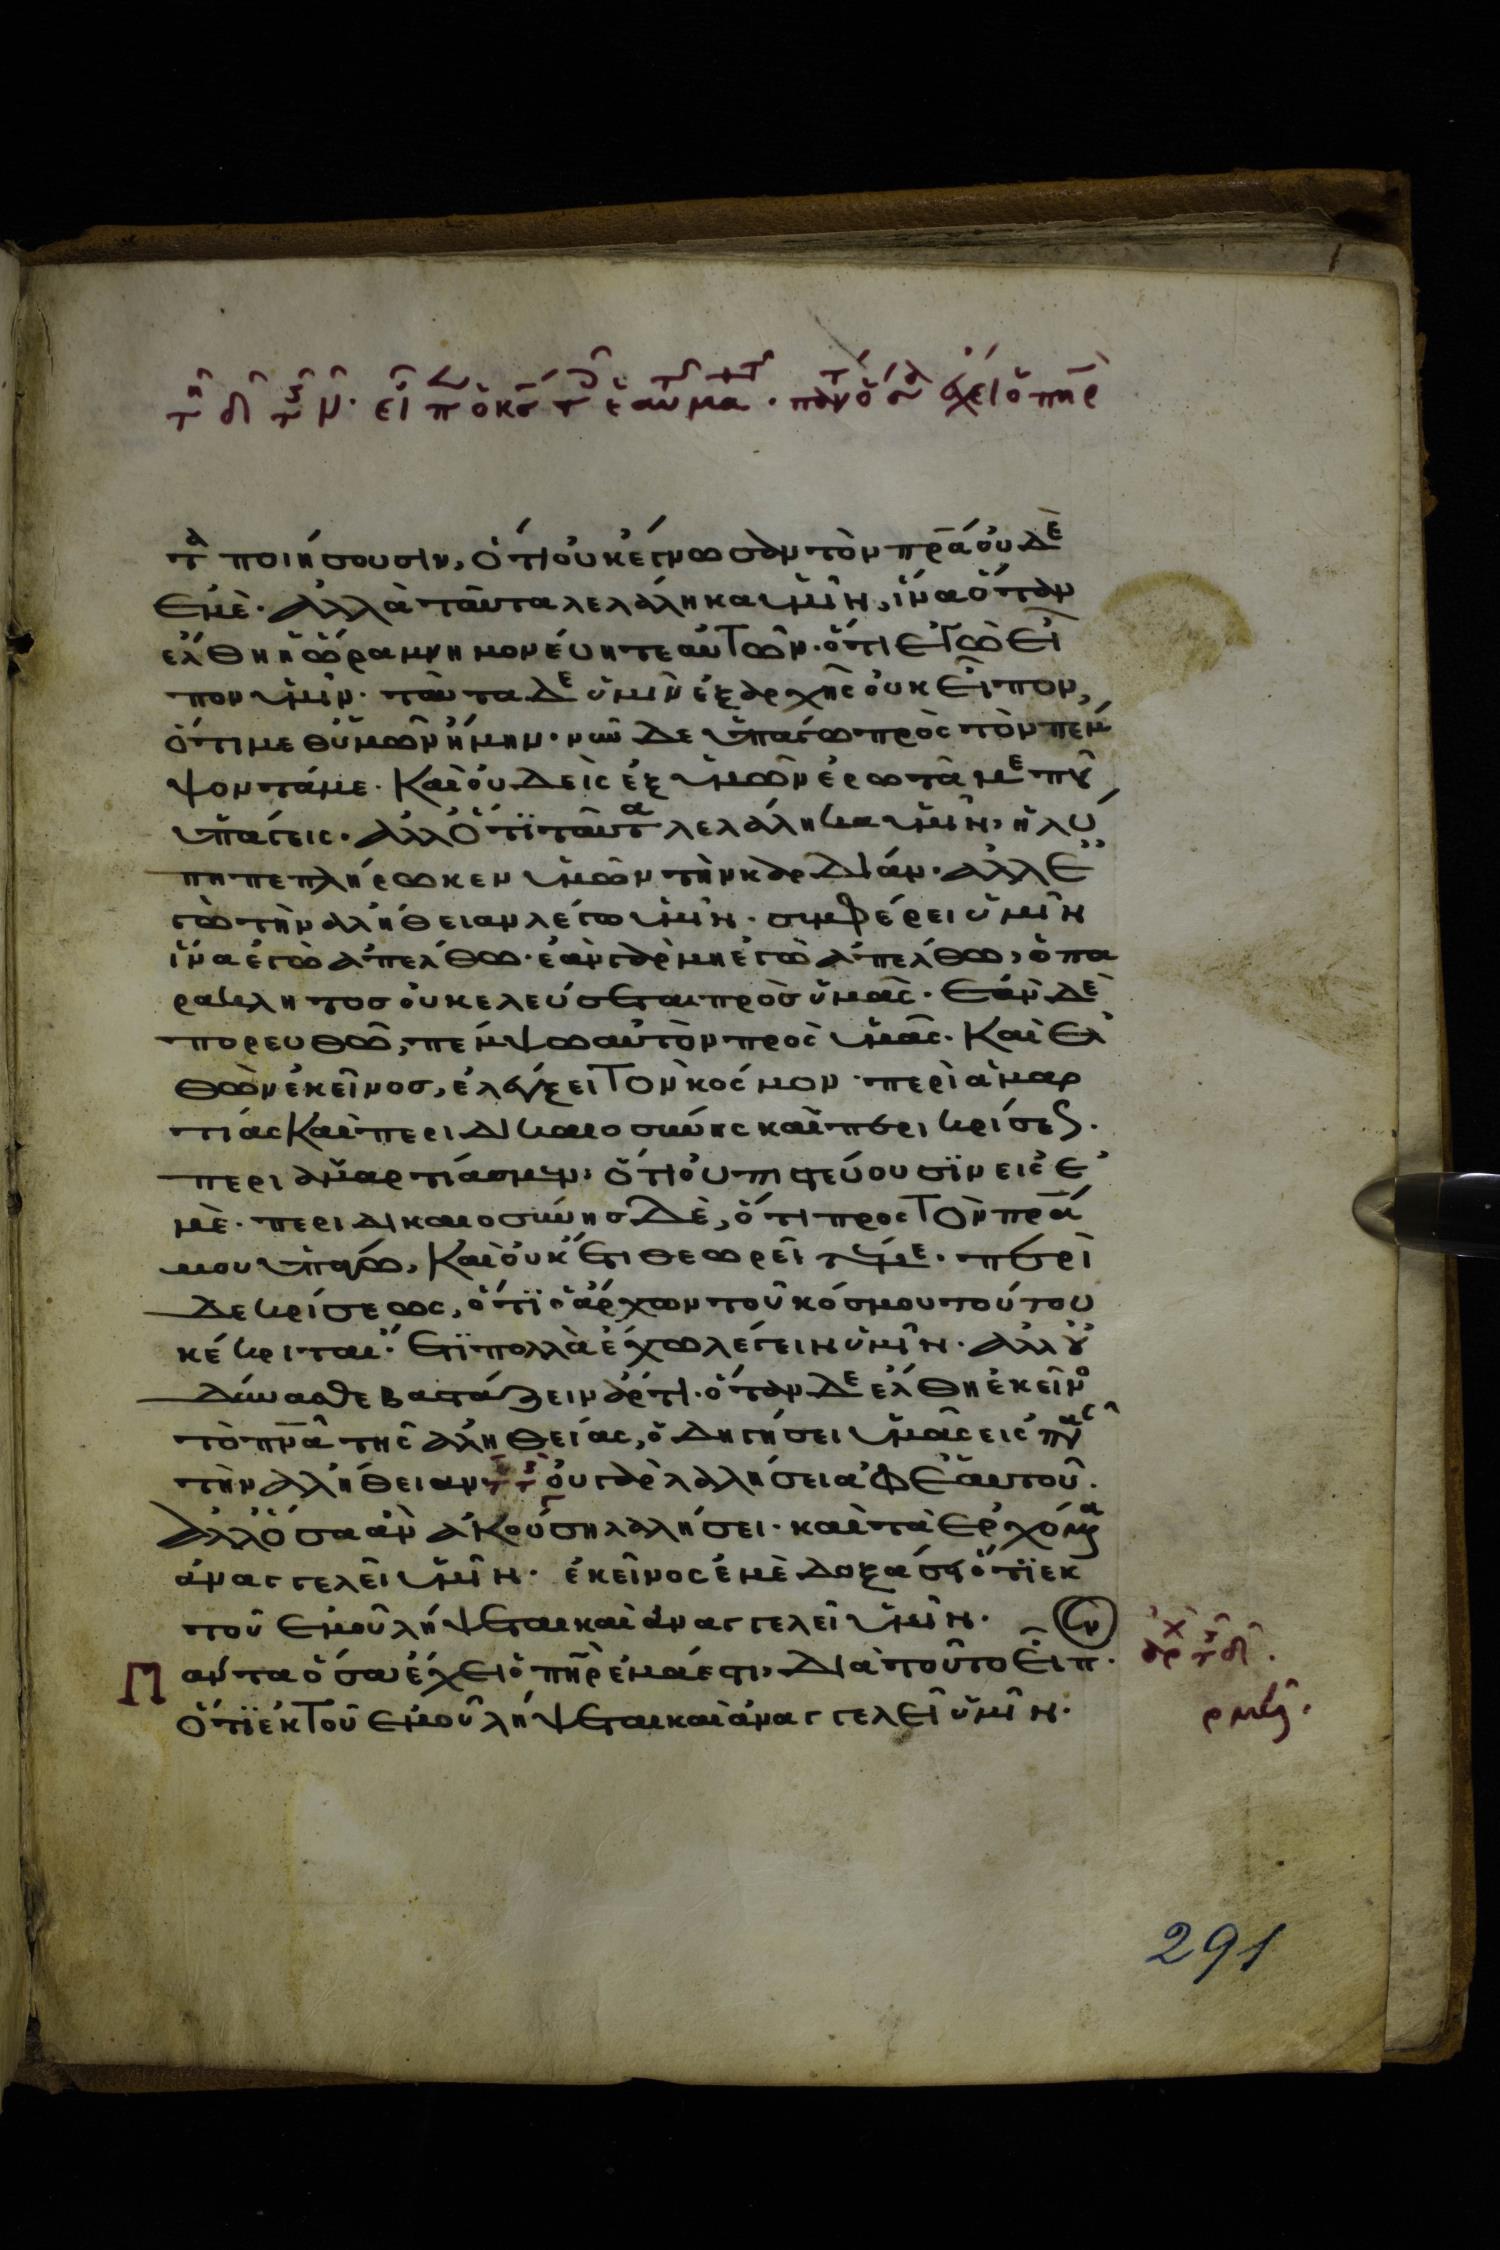 τῆ δι τῆς ν. εἶπεν ὁ κς τοῖς ἑαυτοῦ μαθηταῖς. πάντα ὅσα ἔχει ὁ πηρ
τα ποιήσουσιν, ὅτι οὐκ έγνωσαν τὸν πρα οὐδὲ
ἐμέ. ἀλλὰ ταῦτα λελάληκα ὑμῖν, ἵνα ὅταν
ἐλθη ἡ ὥρα μνημονέυητε αὐτῶν. ὅτι ἐγὼ εἶ
πον ὑμῖν. ταῦτα δε ὑμῖν ἐξ αρχῆς οὐκ εἶπον,
ὅτι μεθ ὑμῶν ἤμην. νῦν δε ὑπάγω πρὸς τὸν πέμ
ψοντά με. Καὶ οὐδεὶς ἐξ ὑμῶν ἐρωτᾶ με ποῦ
ὑπάγεις. ἀλλ ὅτϊ ταῦτα λελάληκα ὑμῖν, ἡ λύ
πη πεπλήρωκεν ὑμῶν τὴν καρδίαν. ἀλλ ἐ
γὼ τὴν ἀλήθειαν λέγω ὑμῖν. συμφέρει ὑμῖν
ἵνα ἐγὼ ἀπελθω. ἐὰν γὰρ μὴ ἐγὼ ἀπέλθω, ὁ πα
ράκλητοσ οὐκ ελεύσεται πρὸσ ὑμᾶς. Ἐὰν δὲ
πορευθῶ, πέμψω αὐτὸν πρὸς ὑμᾶς. Καὶ ἐλ
θὼν ἐκεῖνοσ, ἐλέγξει τὸν κόσμον. περὶ ἁμαρ
τίας καὶ περι δικαιοσύνης καὶ περι κρίσεως.
περι ἁμαρτίασ μεν, ὅτι οὐ πιστεύουσϊν εις ἐ
μέ. περι δικαιοσύνησ δὲ, ὅτι προς τὸν πρα
μου ὑπάγω, Καὶ οὐκ ἔτι θεωρεῖτέ με. περὶ
δε κρίσεως, ὅτϊ ὁ ἄρχων τοῦ κόσμου τούτου
κέκριται. Ἔτϊ πολλὰ ἔχω λέγειν ὑμῖν. ἀλλ οὐ
δύνασθε βαστάζειν ἄρτι. ὅταν δε ἐλθη ἐκεῖνος
τὸ πνα τῆς ἀληθείας, ὁδηγήσει ὑμᾶς εις πᾶσαν
τὴν ἀλήθειαν οὐ γὰρ λαλήσει ἀφ ἑαυτοῦ.
ἀλλ ὅσα ἂν ἀκούση λαλήσει. καὶ τὰ ἐρχόμενα
ἀναγγελεῖ ὑμῖν. ἐκεῖνος ἐμὲ δοξάσει ὅτϊ ἐκ
τοῦ ἐμοῦ λήψεται καὶ ἀναγγελεῖ ὑμῖν.
Πάντα ὅσα ἔχει ὁ πηρ ἐμά ἐστι, Διὰ τοῦτο εἶπ.
Ὅτϊ ἐκ τοῦ ἐμοῦ λήψεται καὶ ἀναγγελεῖ ὑμῖν.
291